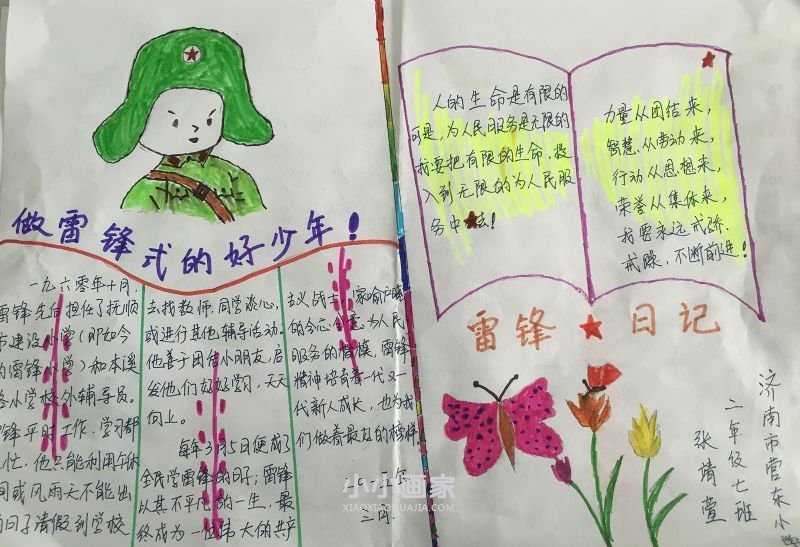 做雷锋式的好少年！
一九六零年十月,
雷锋先后担任了抚顺
市建设小学(即如今
的雷锋小学)和本溪
路小学校外辅导员。
雷锋平时工作、学习都
忙，他只能利用午休
间或风雨天不能出
的日子请假到学校
去找教师、同学谈心,
或进行其他辅导活动。
他善于团结小朋友，启
发他们好好学习，天天
向上。
每年3月5日便成了
全民学雷锋的日子；雷锋
以其不平凡的一生，最
终成为一位伟大的共产
主义战士，家喻户晓
的
为人民
服务的楷模，雷锋
精神培育着一代又一
代新人成长，也为我
们做着最好的榜样
三月.
人的生命是有限的
可是，为人民服务是无限的
我要把有限的生命，投
入到无限的为人民服
务中去！
力量从团结来,
智慧从劳动来,
行动从思想来,
荣誉从集体来,
我要永远戒骄、
戒躁、不断前进！
雷锋★日记
济南市营东小
二年级七班
张靖萱
小小画家
XIAOXIAOHUAJIA.COM